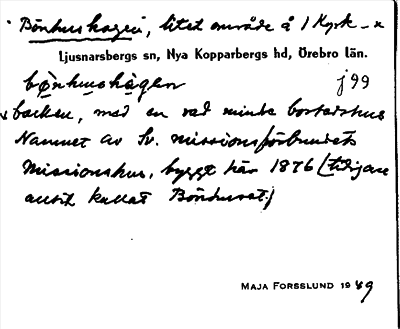 Bönhushagen, litet område å 1 Kyrk- x
Ljusnarsbergs sn, Nya Kopparbergs hd, Örebro län.
bö̱nhushàgen j 99
x backen, med en rad mindre bostadshus
Namnet av Sv. missionsförbundets
Missionshus, byggt här 1876 (tidigare
allt kallat Bönhuset.)
MAJA FORSSLUND 1949